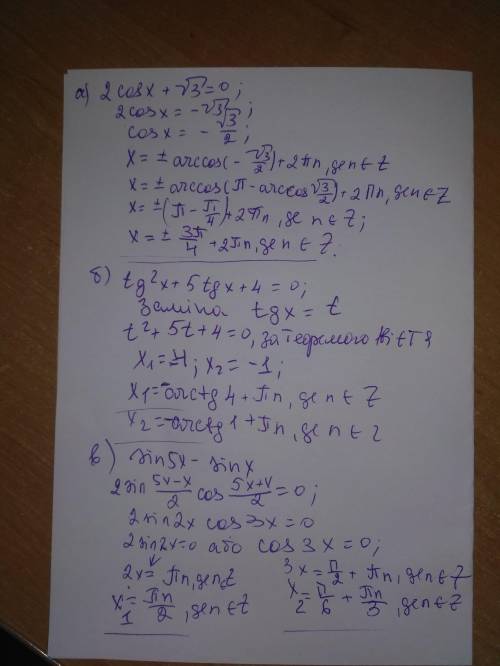 а) 2 cosx + √3 = 0;
2cosx = -√3;
cosx = - √3/2;
x = ± arccos(- √3/2) + 2πn, де n ∈ Z
x = ± arccos(π - arccos √3/2) + 2πn, де n ∈ Z
x = ±(π - π/4) + 2πn, де n ∈ Z;
x = ± 3π/4 + 2πn, де n ∈ Z.
б) tg²x + 5tgx + 4 = 0;
Заміна tgx = t
t² + 5t + 4 = 0, за теоремою Вієтта
x₁ = -4; x₂ = -1;
x₁ = -arctg 4 + πn, де n ∈ Z
x₂ = -arctg 1 + πn, де n ∈ Z
в) sin5x - sinx
2sin (5x-x)/2 cos (5x+x)/2 = 0;
2sin2x cos3x = 0
2sin2x = 0 або cos3x = 0;
2x = πn, де n ∈ Z 3x = π/2 + πn, де n ∈ Z
x₁ = πn/2, де n ∈ Z x₂ = π/6 + πn/3, де n ∈ Z